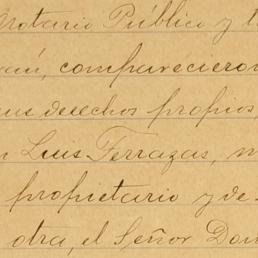 Notario Público y t
van, comparecieron
sus derechos propios
n Luis Terrazas, m
propietario y de
otra, el Señor Don